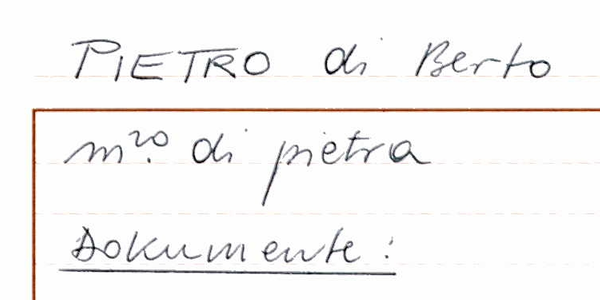 PIETRO di Berto
m.ro di pietra
Dokumente: